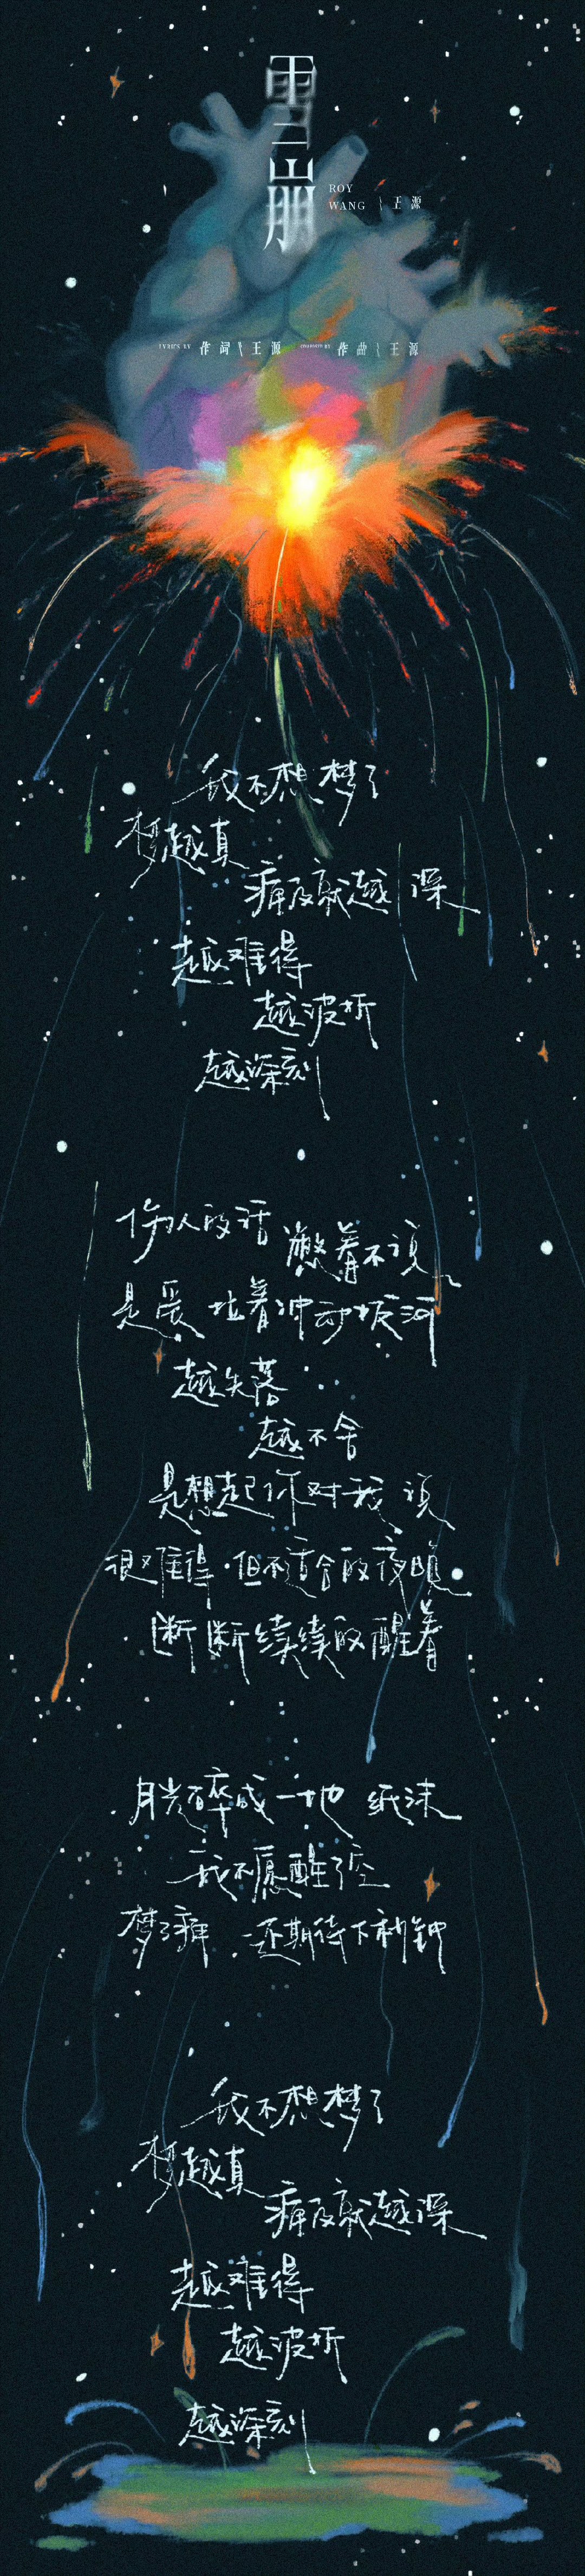 雪崩
ROY
WANG 王源
LYRICS BY 作词 王源 COMPOSED BY 作曲 王源
我不想梦了
梦越真
痛及就越深
越难得
越波折
越深刻
伤人的话 憋着不说
是爱 拉着冲动拔河
越失落
越不舍
是想起你对我说
很难得·但不适合的夜晚
断断续续的醒着
月光破碎成一地 纸沫
我不愿醒了空
梦了痛 还期待下秒钟
我不想梦了
梦越真
痛及就越深
越难得
越波折
越深刻